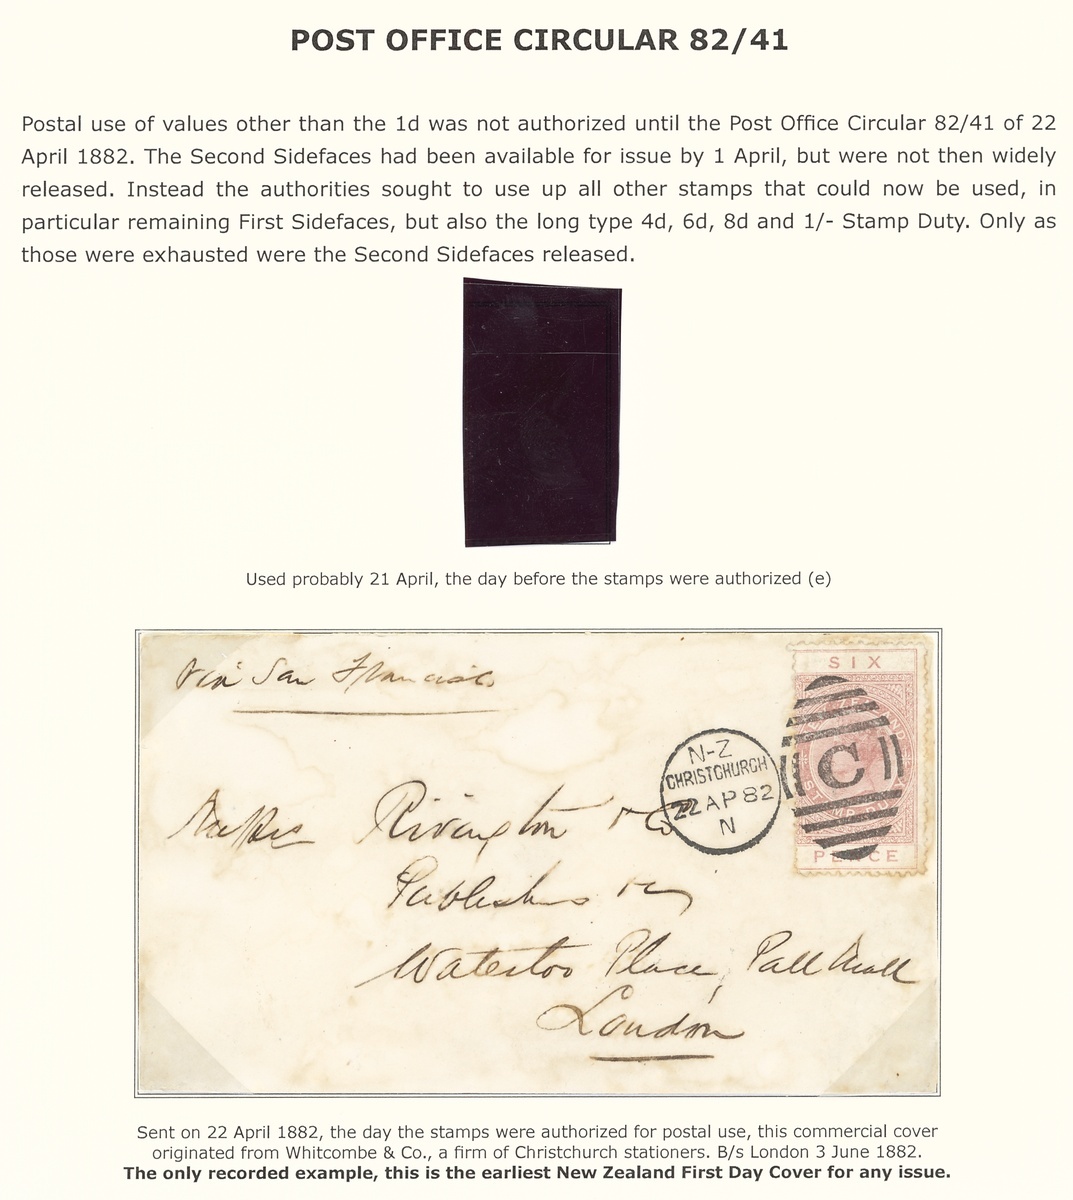 POST OFFICE CIRCULAR 82/41
Postal use of values other than the 1d was not authorized until the Post Office Circular 82/41 of 22
April 1882. The Second Sidefaces had been available for issue by 1 April, but were not then widely
released. Instead the authorities sought to use up all other stamps that could now be used, in
particular remaining First Sidefaces, but also the long type 4d, 6d, 8d and 1/- Stamp Duty. Only as
those were exhausted were the Second Sidefaces released.
Used probably 21 April, the day before the stamps were authorized (e)
via San Francisco
SIX
N-Z
CHRISTCHURCH
22 AP 82
N
C
PENCE
Rivington & Co
Publishers
Waterloo Place, Pall Mall
London
Sent on 22 April 1882, the day the stamps were authorized for postal use, this commercial cover
originated from Whitcombe & Co., a firm of Christchurch stationers. B/s London 3 June 1882.
The only recorded example, this is the earliest New Zealand First Day Cover for any issue.